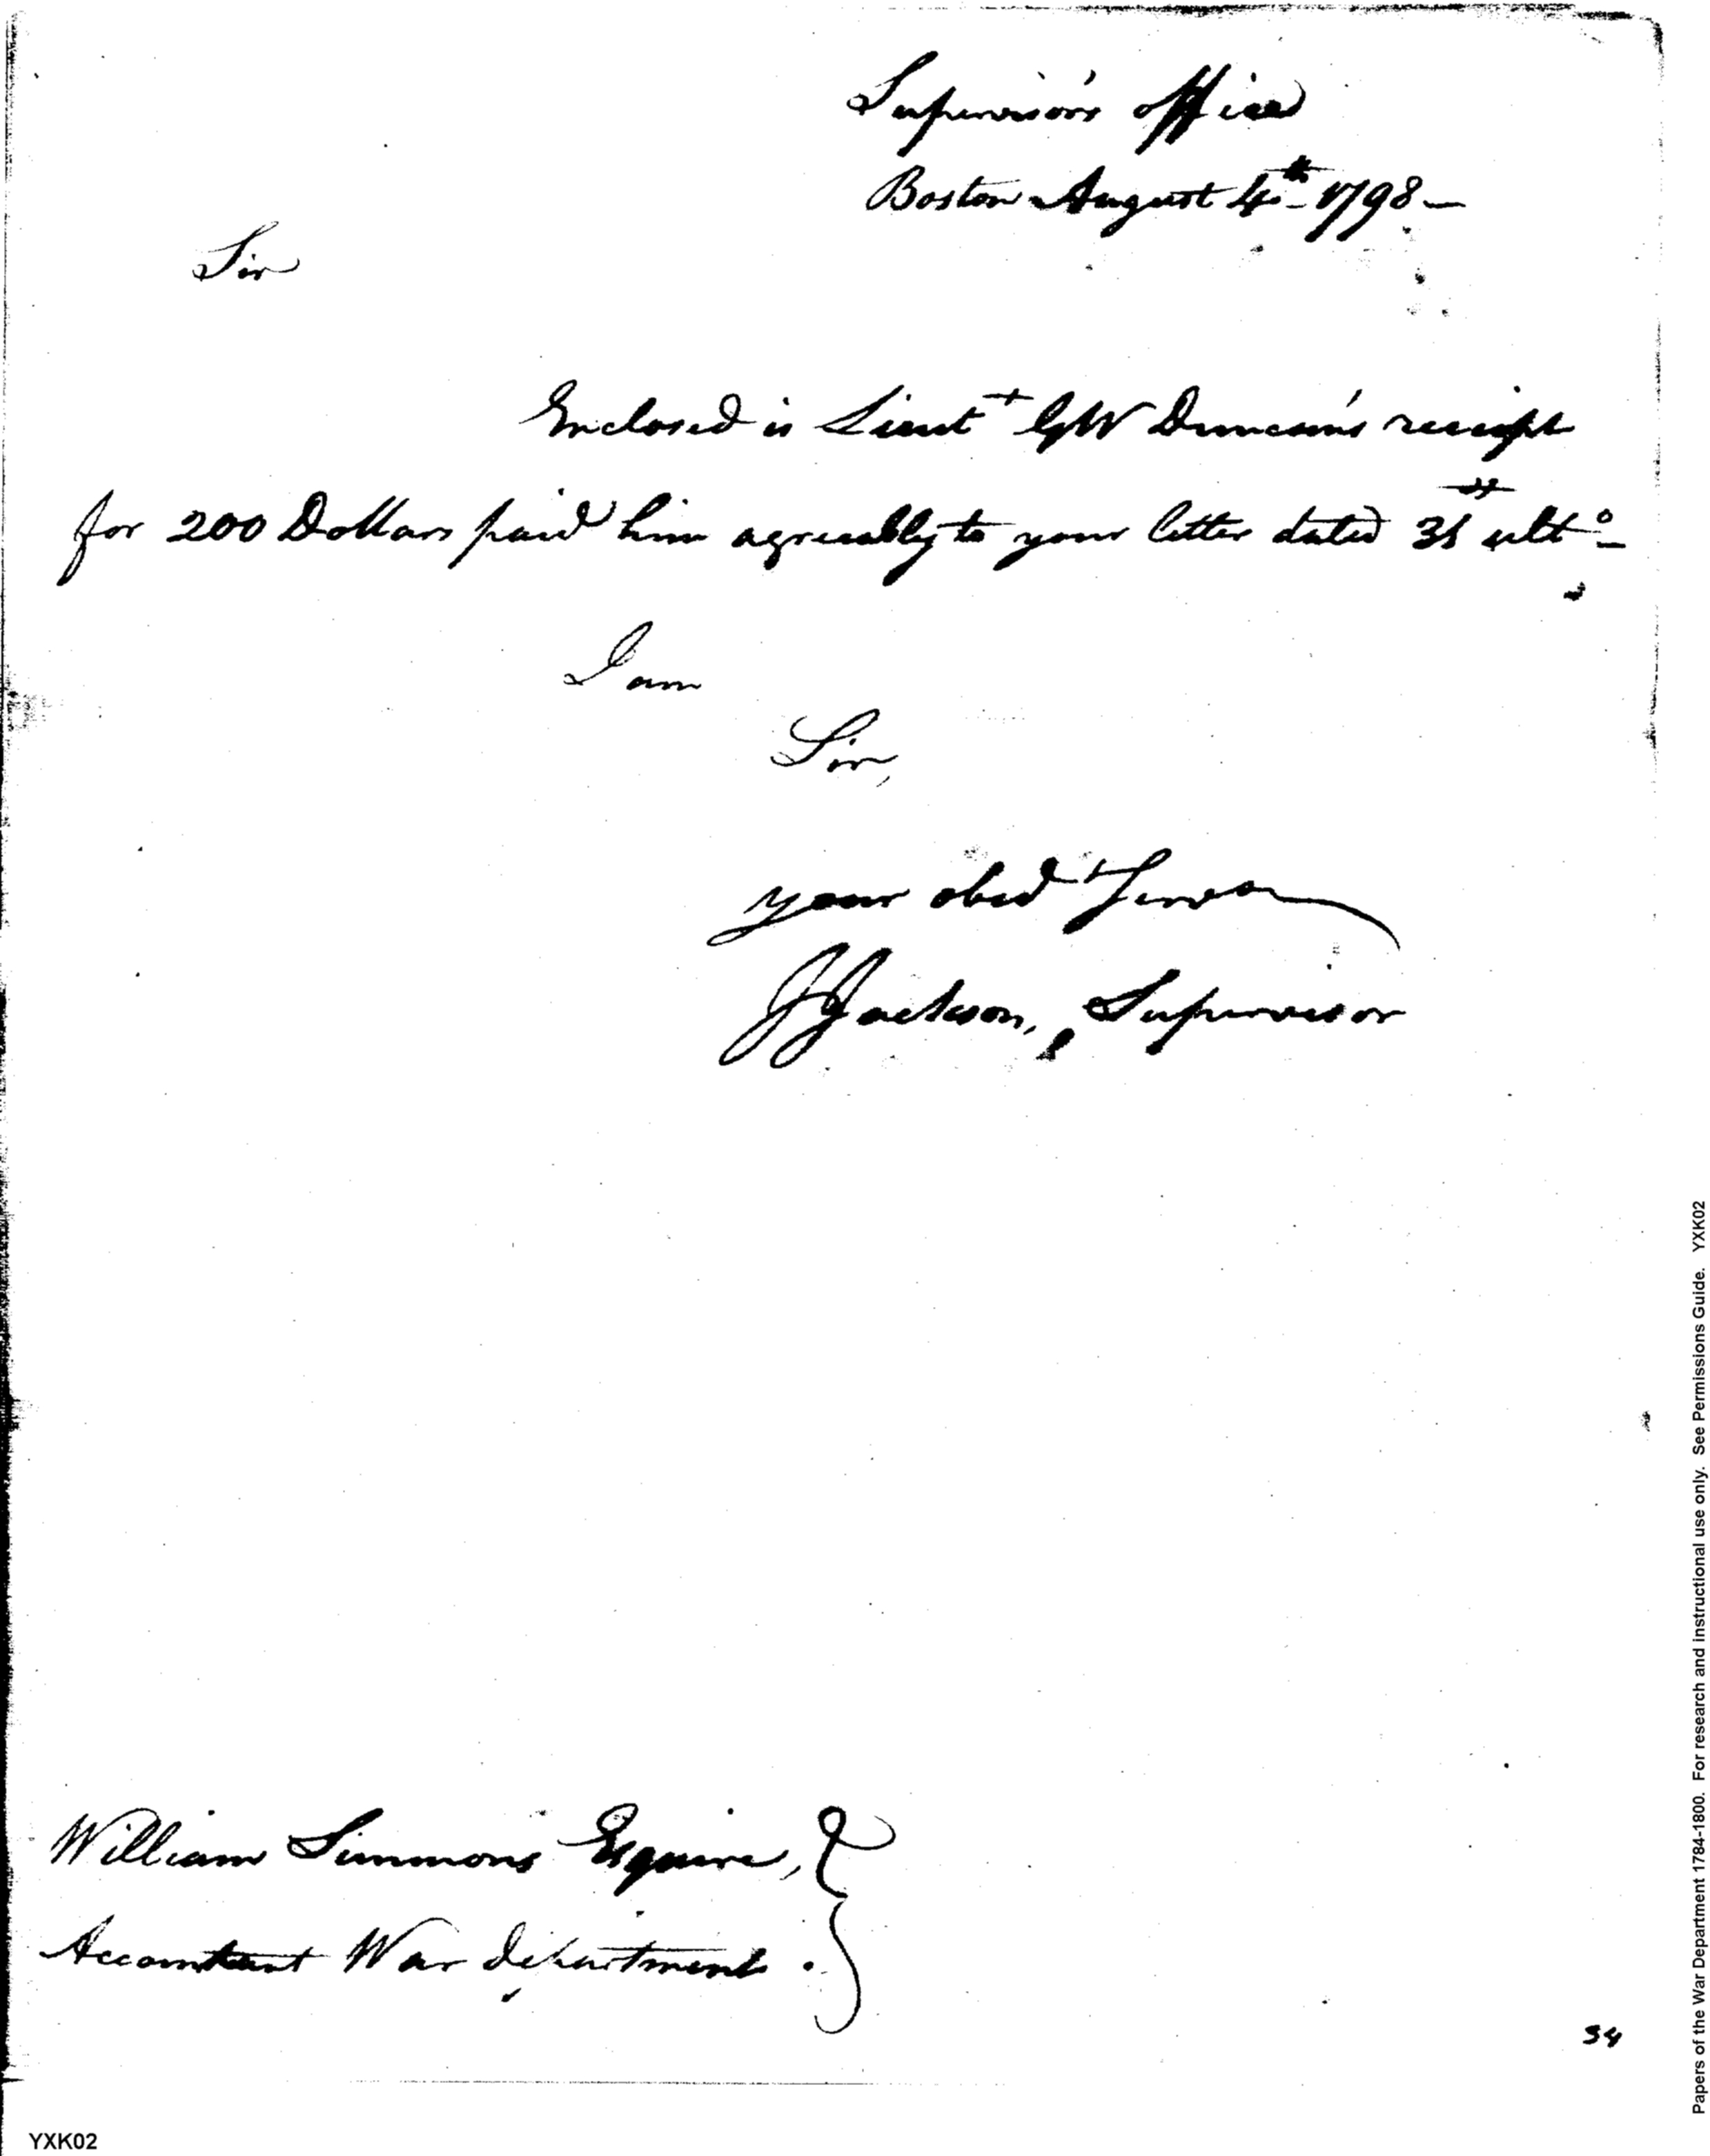 Supervisor's office
Boston August 4th 1798 —
Sir
Enclosed is Lieut GW Duncan's receipt
for 200 Dollars paid him agreeably to your letter dated 31st ulto
I am
Sir,
your obed Serva
J Jackson, Supervisor
William Simmons Esquire,
Accountant War department.
34
YXK02
Papers of the War Department 1784-1800. For research and instructional use only. See Permissions Guide. YXK02